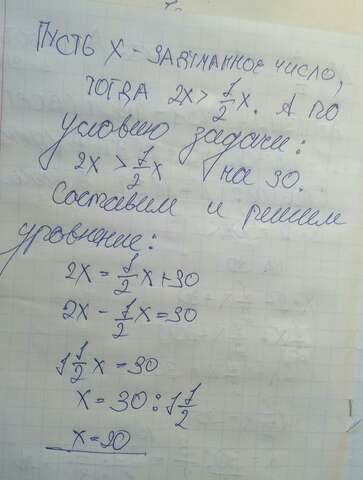 Пусть х - задуманное число,
тогда 2х > 1/2 х. А по
условию задачи:
2х > 1/2 х на 30.
Составим и решим
уровнение:
2х = 1/2 х + 30
2х - 1/2 х = 30
1 1/2 х = 30
х = 30 : 1 1/2
х = 20